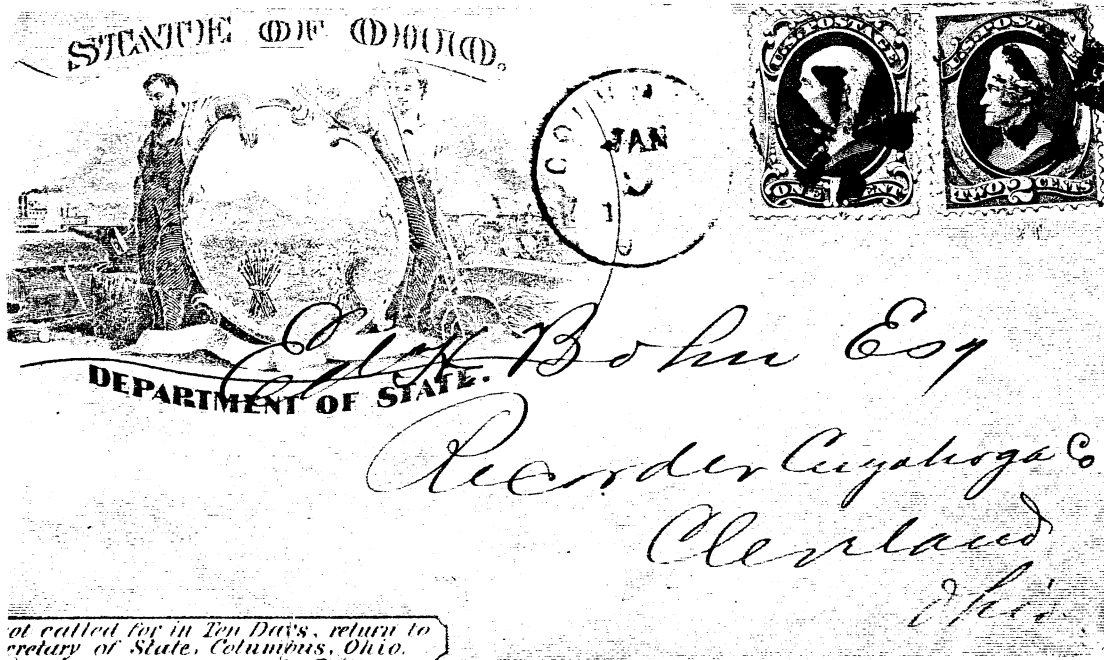 STATE OF OHIO.
U.S. POSTAGE
U.S. POSTAGE
JAN
ONE CENT
TWO 2 CENTS
DEPARTMENT OF STATE.
Ed H Bohn Esq
Recorder Cuyahoga Co
Cleveland
Ohio
ot called for in Ten Days, return to
cretary of State, Columbus, Ohio.